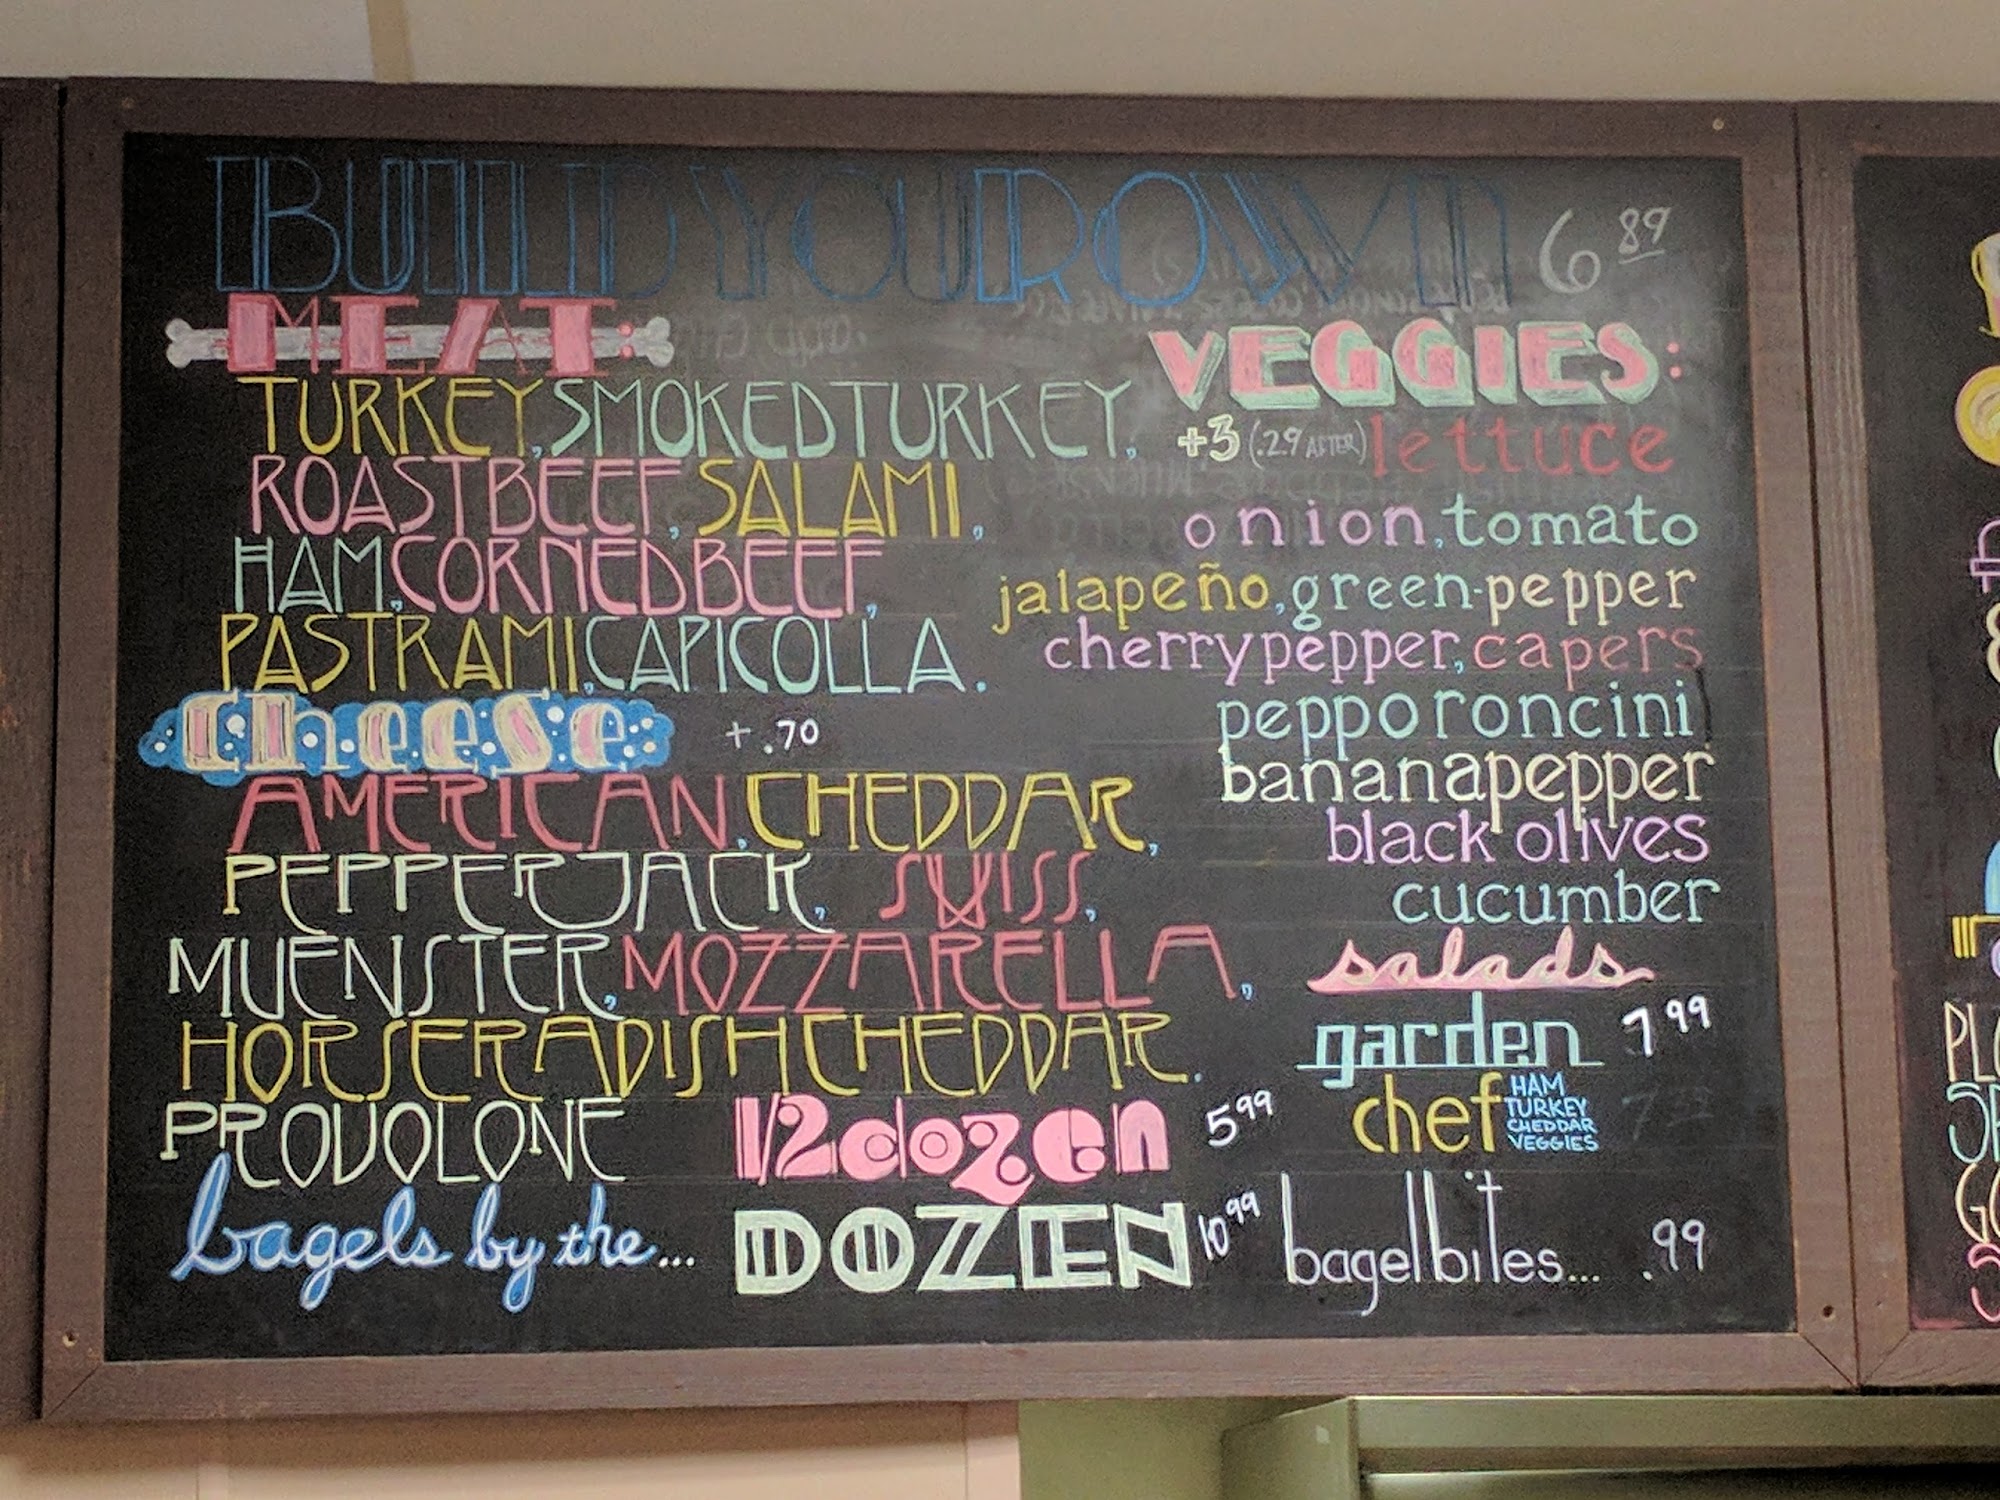 BUILD YOUR OWN 6 89
MEAT:
TURKEY, SMOKED TURKEY,
ROAST BEEF, SALAMI,
HAM, CORNED BEEF,
PASTRAMI, CAPICOLLA.
Cheese + .70
AMERICAN, CHEDDAR,
PEPPERJACK, SWISS,
MUENSTER, MOZZARELLA,
HORSERADISH CHEDDAR.
PROVOLONE
VEGGIES:
+3 (.29 AFTER) lettuce
onion, tomato
jalapeño, green-pepper
cherry pepper, capers
pepporoncini
banana pepper
black olives
cucumber
salads
garden 7 99
chef HAM
TURKEY
CHEDDAR
VEGGIES
bagels by the...
1/2 dozen 5 99
DOZEN 10 99
bagel bites... .99